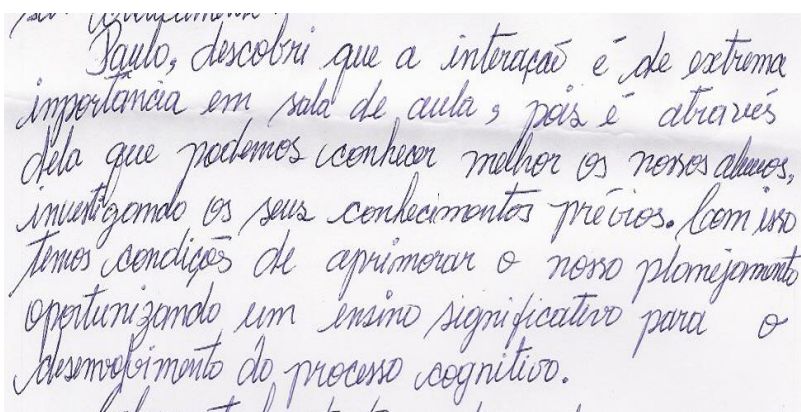 seu
Paulo, descobri que a interação é de extrema
importância em sala de aula, pois é através
dela que podemos conhecer melhor os nossos alunos,
investigando os seus conhecimentos prévios. Com isso
temos condições de aprimorar o nosso planejamento
oportunizando um ensino significativo para o
desenvolvimento do processo cognitivo.